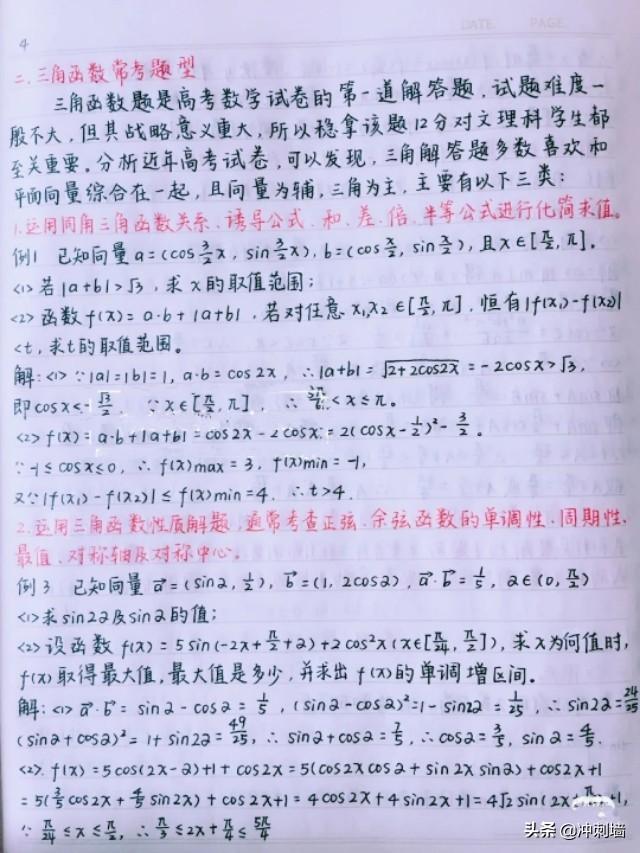 DATE PAGE
4
二.三角函数常考题型
三角函数题是高考数学试卷的第一道解答题,试题难度一
般不大,但其战略意义重大,所以稳拿该题12分对文理科学生都
至关重要。分析近年高考试卷,可以发现,三角解答题多数喜欢和
平面向量综合在一起,且向量为辅,三角为主,主要有以下三类:
1.运用同角三角函数关系、诱导公式、和、差、倍、半等公式进行化简求值。
例1 已知向量a=(cos3/2x, sin3/2x), b=(cosx/2, sinx/2), 且x∈[π/2, π],
<1>若|a+b|>√3, 求x的取值范围;
<2>函数f(x)=a·b+|a+b|, 若对任意x₁,x₂∈[π/2, π], 恒有|f(x₁)-f(x₂)|
<t, 求t的取值范围。
解:<1>∵|a|=|b|=1, a·b=cos2x, ∴|a+b|=√2+2cos2x=-2cosx>√3,
即cosx<-√3/2. ∵x∈[π/2, π], ∴ <x≤π.
<2>f(x)=a·b+|a+b|=cos2x-2cosx=2(cosx-1/2)²-3/2。
∵-1≤cosx≤0, ∴f(x)max=3, f(x)min=-1,
又∵|f(x₁)-f(x₂)|≤f(x)min=4, ∴t>4.
2.运用三角函数性质解题,通常考查正弦、余弦函数的单调性、周期性,
最值、对称轴及对称中心。
例3 已知向量a⃗=(sin2, 1/2), b⃗=(1, 2cos2), a⃗·b⃗=1/5, 2∈(0, π/2)
<1>求sin22及sin2的值;
<2>设函数f(x)=5sin(-2x+π/2+2)+2cos²x(x∈[π/24, π/2]), 求x为何值时,
f(x)取得最大值,最大值是多少,并求出f(x)的单调增区间。
解:<1>a⃗·b⃗=sin2-cos2=1/5, (sin2-cos2)²=1-sin22=1/25, ∴sin22=24/25
(sin2+cos2)²=1+sin22=49/25, ∴sin2+cos2=7/5, ∴cos2=3/5, sin2=4/5.
<2>.f(x)=5cos(2x-2)+1+cos2x=5(cos2xcos2+sin2xsin2)+cos2x+1
=5(3/5cos2x+4/5sin2x)+cos2x+1=4cos2x+4sin2x+1=4√2sin(2x+ +1,
∵π/24≤x≤π/2, ∴π/3≤2x+π/4≤5π/4
头条 @冲刺墙